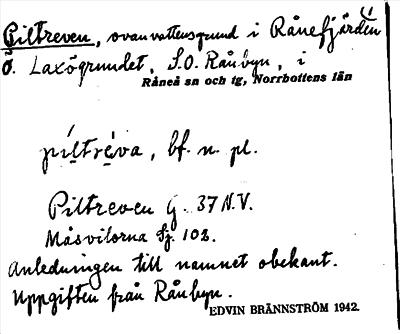 Piltreven, ovanvattensgrund i Rånefjärden
Ö. Laxögrundet, S.O. Rånbyn, i
Råneå sn och tg, Norrbottens län
píltrèva, bf. n. pl.
Piltreven G. 37 N.V.
Måsvilorna Sj. 102.
Anledningen till namnet obekant.
Uppgiften från Rånbyn.
EDVIN BRÄNNSTRÖM 1942.